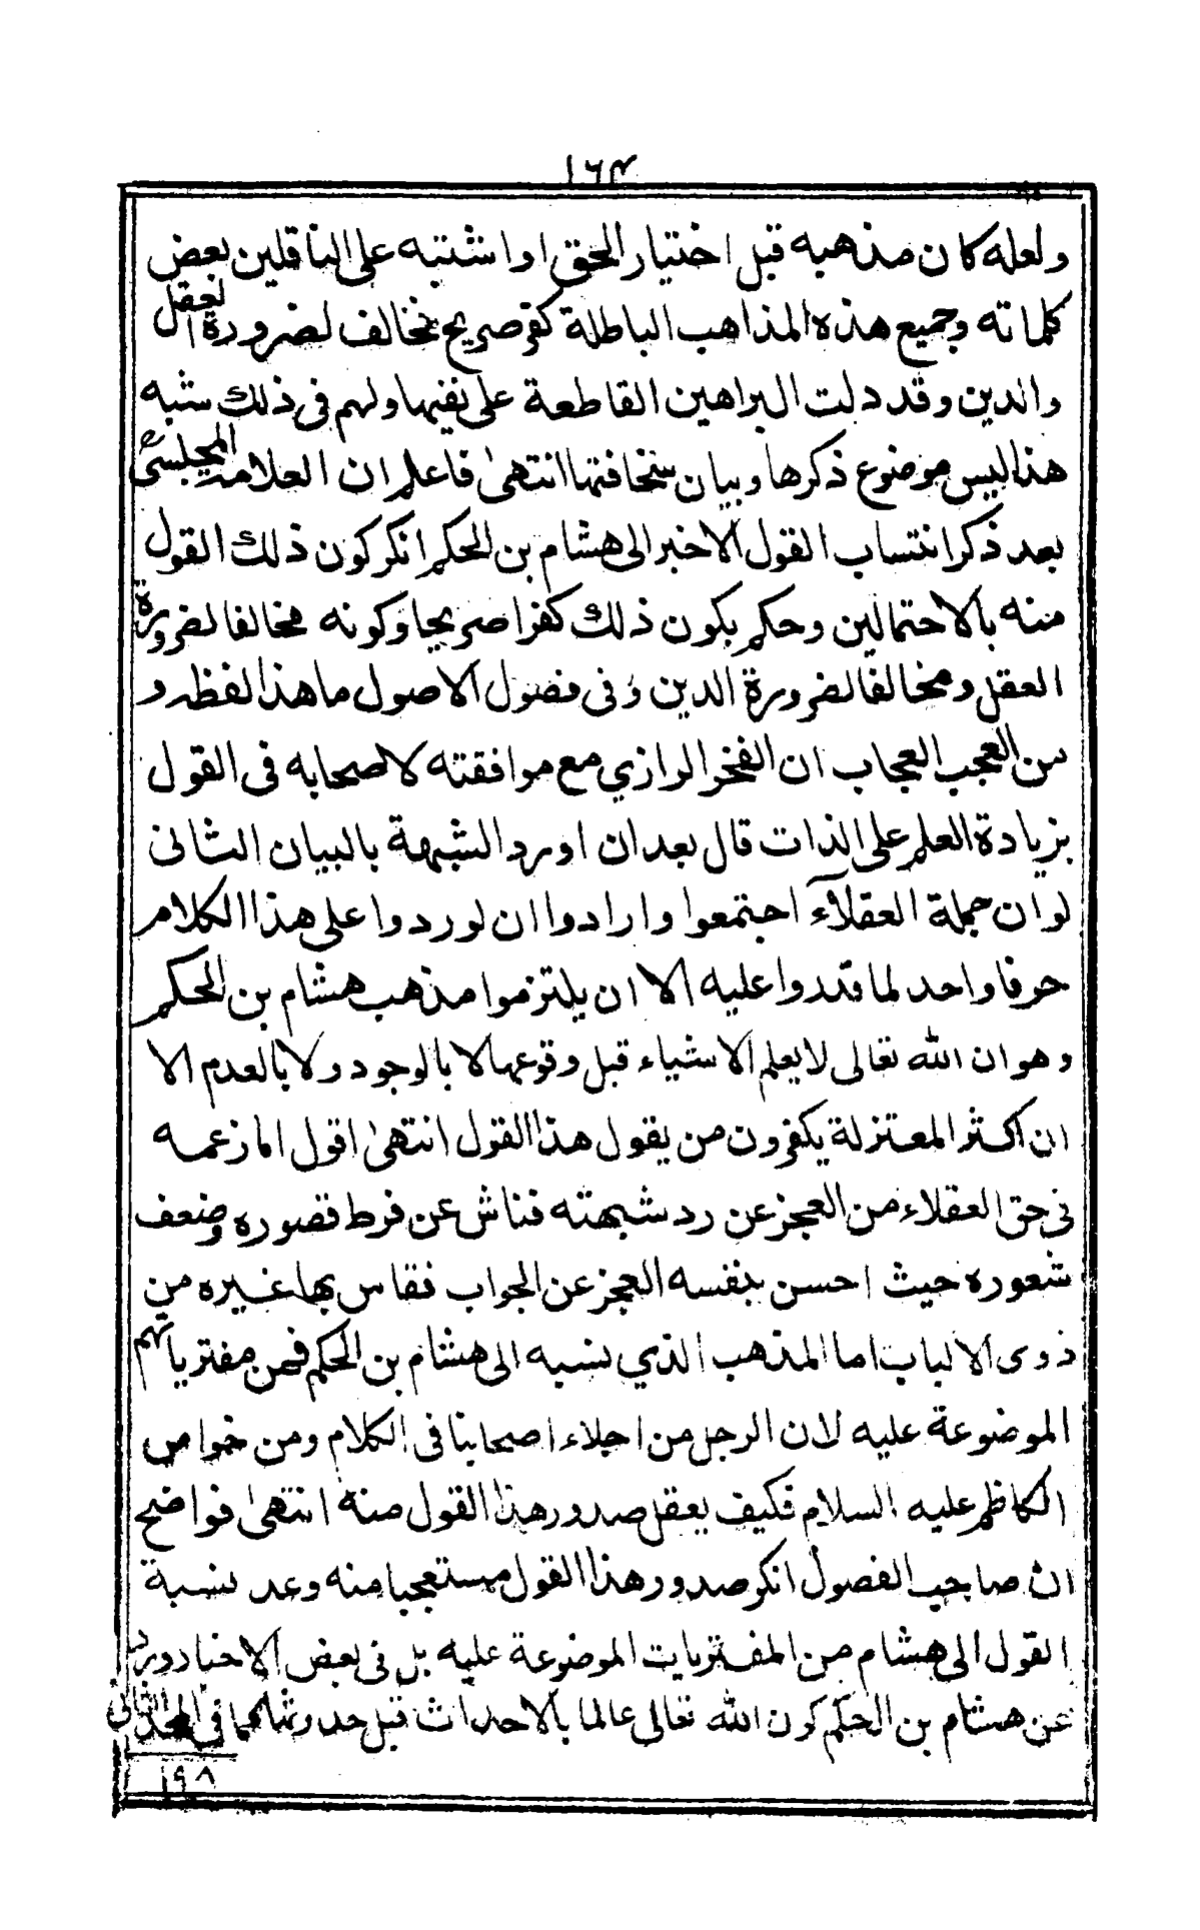 ١٦٤
ولعله كان مذهبه قبل اختيار الحق او اشتبه على الناقلين بعض
كلماته وجميع هذه المذاهب الباطلة كفر صريح مخالف لضرورة العقل
والدين وقد دلت البراهين القاطعة على نفيها ولهم فى ذلك شبه
هذا ليس موضوع ذكرها وبيان سخافتها انتهىٰ فاعلم ان العلامة المجلسى
بعد ذكر انتساب القول الاخير الى هشام بن الحكم انكر كون ذلك القول
منه بالاحتمالين وحكم بكون ذلك كفرا صريحا وكونه مخالفا لضرورة
العقل ومخالفا لضرورة الدين وفى فصول الاصول ما هذا لفظه و
من العجب العجاب ان الفخر الرازي مع موافقته لاصحابه فى القول
بزيادة العلم على الذات قال بعد ان اورد الشبهة بالبيان الثانى
لو ان جملة العقلآء اجتمعوا وارادوا ان لوردوا على هذا الكلام
حرفا واحد لما قدروا عليه الا ان يلتزموا مذهب هشام بن الحكم
وهو ان الله تعالى لا يعلم الاشياء قبل وقوعها لا بالوجود ولا بالعدم الا
ان اكثر المعتزلة يكفرون من يقول هذا القول انتهىٰ اقول اما زعمه
فى حق العقلاء من العجز عن رد شبهته فناش عن فرط قصوره وضعف
شعوره حيث احسن بنفسه العجز عن الجواب فقاس بها غيره من
ذوى الالباب اما المذهب الذي نسبه الى هشام بن الحكم فمن مفترياتهم
الموضوعة عليه لان الرجل من اجلاء اصحابنا فى الكلام ومن خواص
الكاظم عليه السلام فكيف يعقل صدور هذا القول منه انتهىٰ فواضح
ان صاحب الفصول انكر صدور هذا القول مستعجبا منه وعد نسبة
القول الى هشام من المفتريات الموضوعة عليه بل فى بعض الاخبار ويرد
عن هشام بن الحكم كون الله تعالى عالما بالاحداث قبل حدوثها كما فى المجلد الثانى
١٩٨